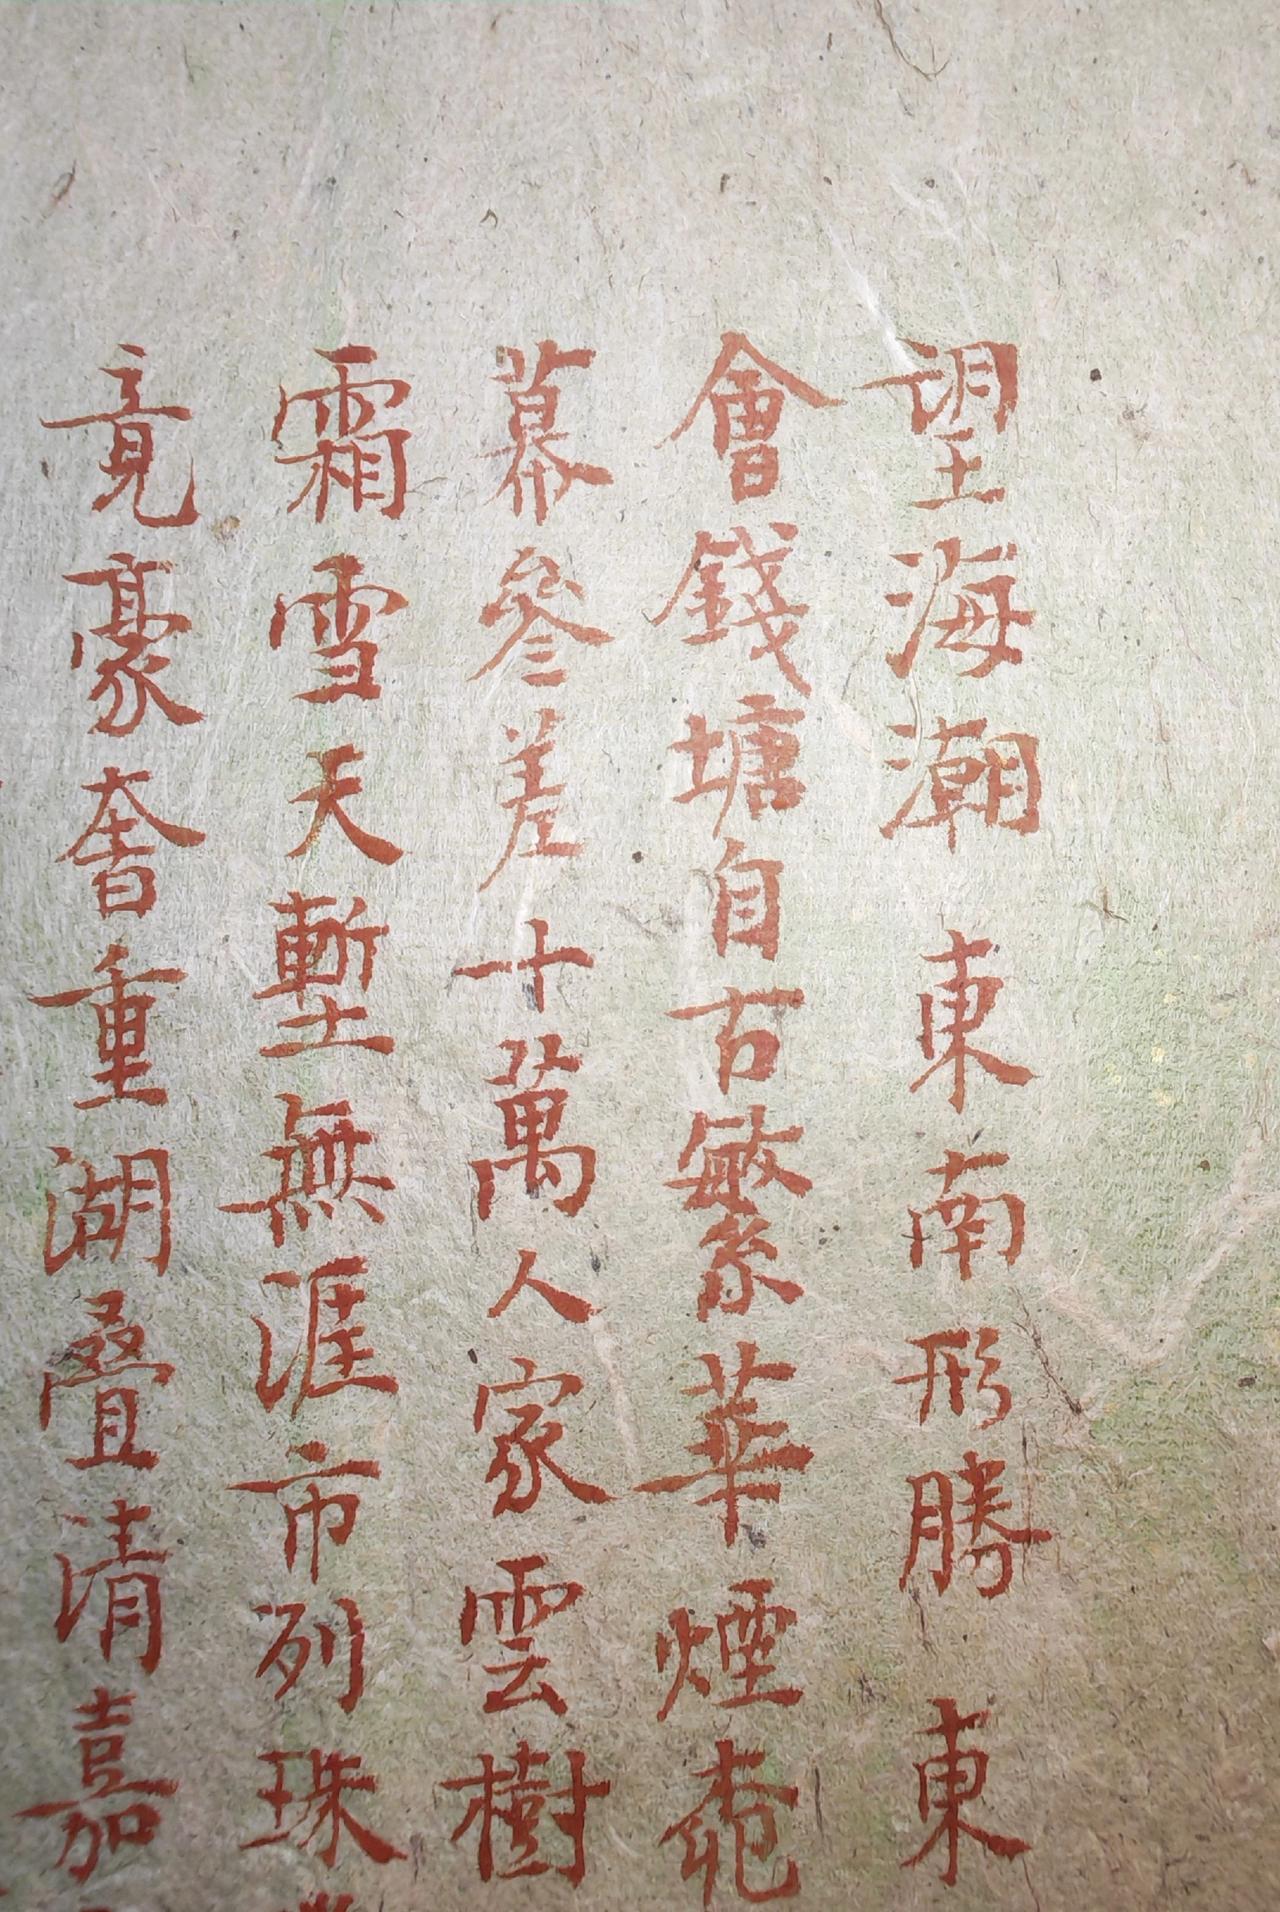 望海潮 東南形勝 東
會錢塘自古繁華煙
幕參差十萬人家雲樹
霜雪天塹無涯市列珠
竟豪奢重湖叠清嘉